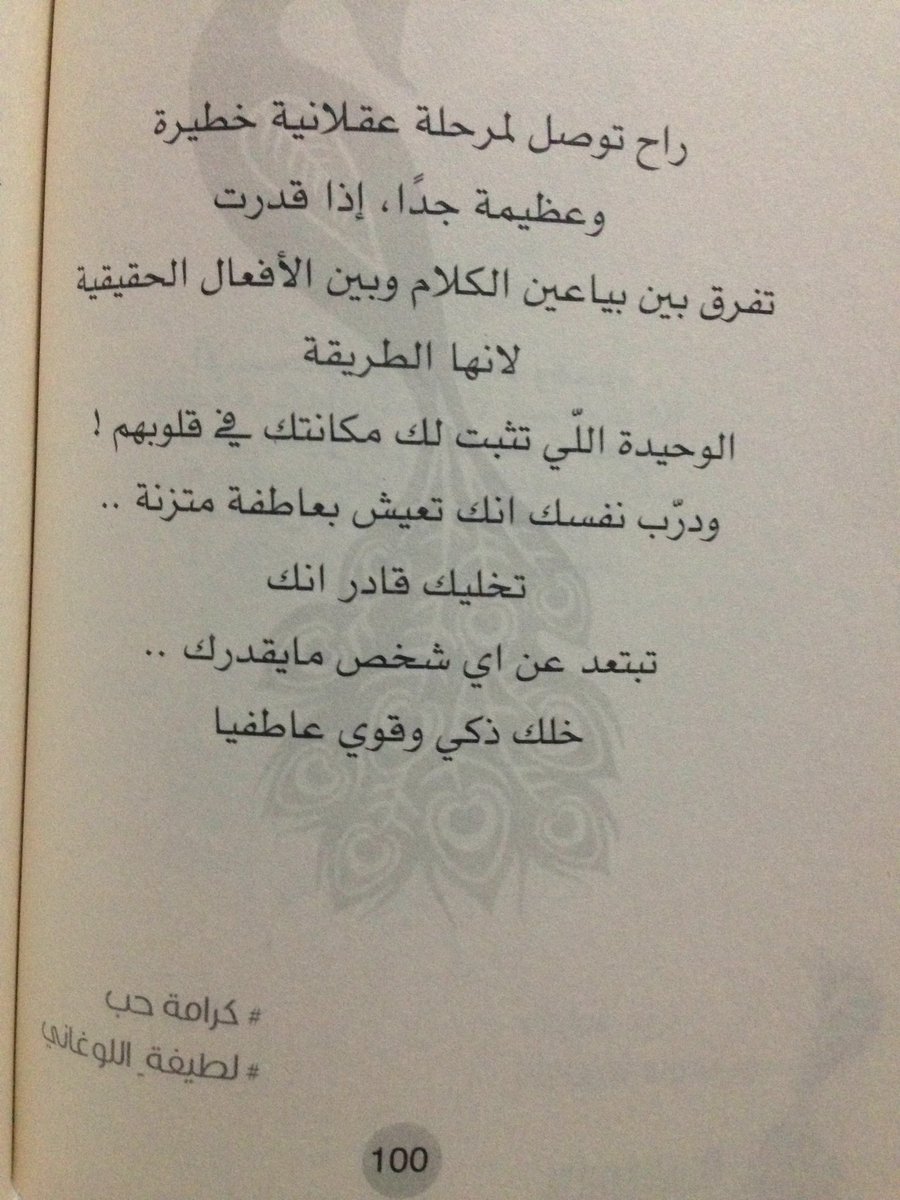 راح توصل لمرحلة عقلانية خطيرة
وعظيمة جدًا، إذا قدرت
تفرق بين بياعين الكلام وبين الأفعال الحقيقية
لانها الطريقة
الوحيدة اللّي تثبت لك مكانتك في قلوبهم !
ودرّب نفسك انك تعيش بعاطفة متزنة ..
تخليك قادر انك
تبتعد عن اي شخص مايقدرك ..
خلك ذكي وقوي عاطفيا
# كرامة حب
# لطيفة_اللوغاني
100